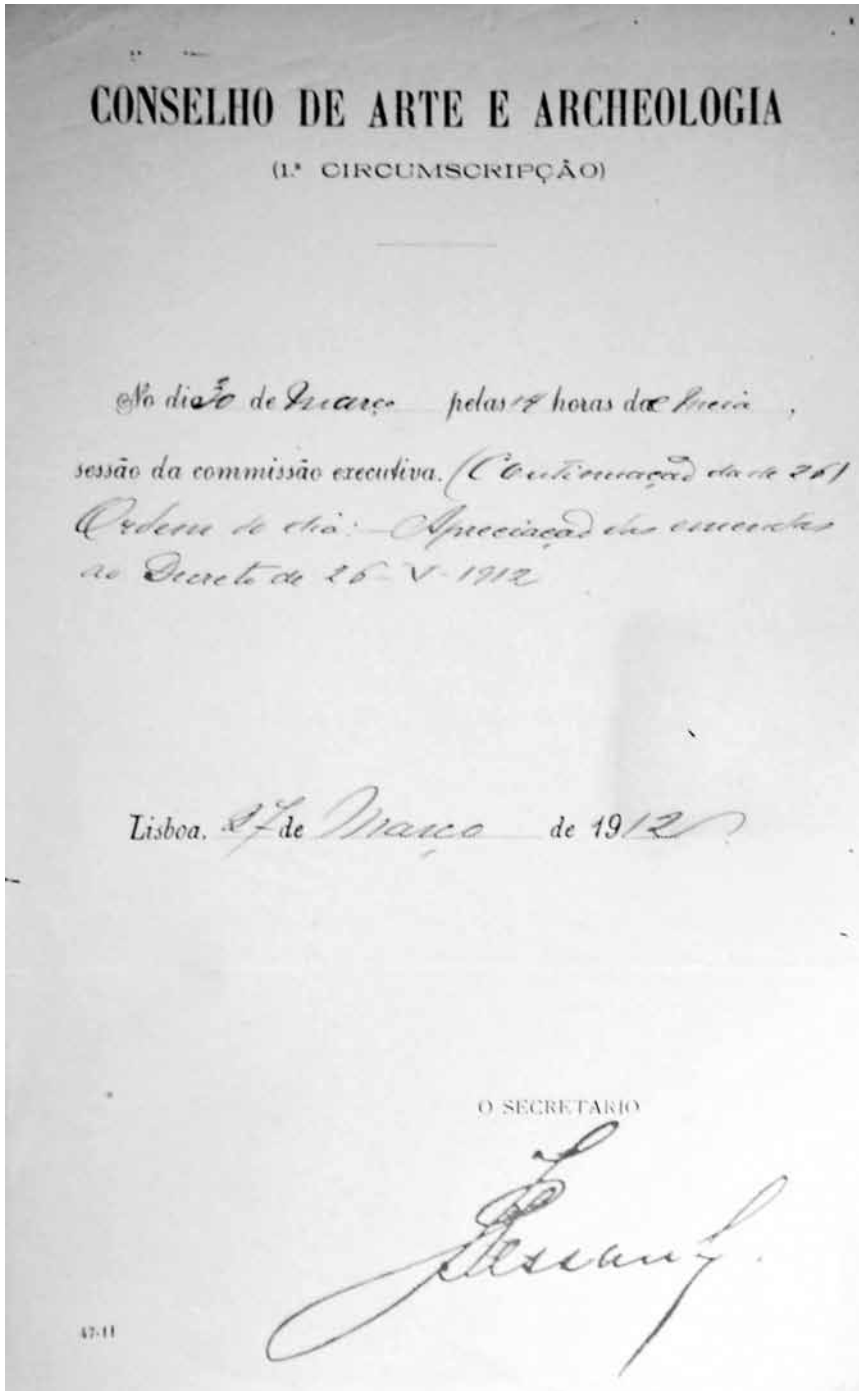 CONSELHO DE ARTE E ARCHEOLOGIA
(1.ª CIRCUMSCRIPÇÃO)
No dia 30 de Março pelas horas da e meia,
sessão da commissão executiva. (Continuação da de 26)
Ordem do dia: - Apreciação das emendas
ao Decreto de 26-V-1912
Lisboa, 27 de Março de 1912
O SECRETARIO
47-11